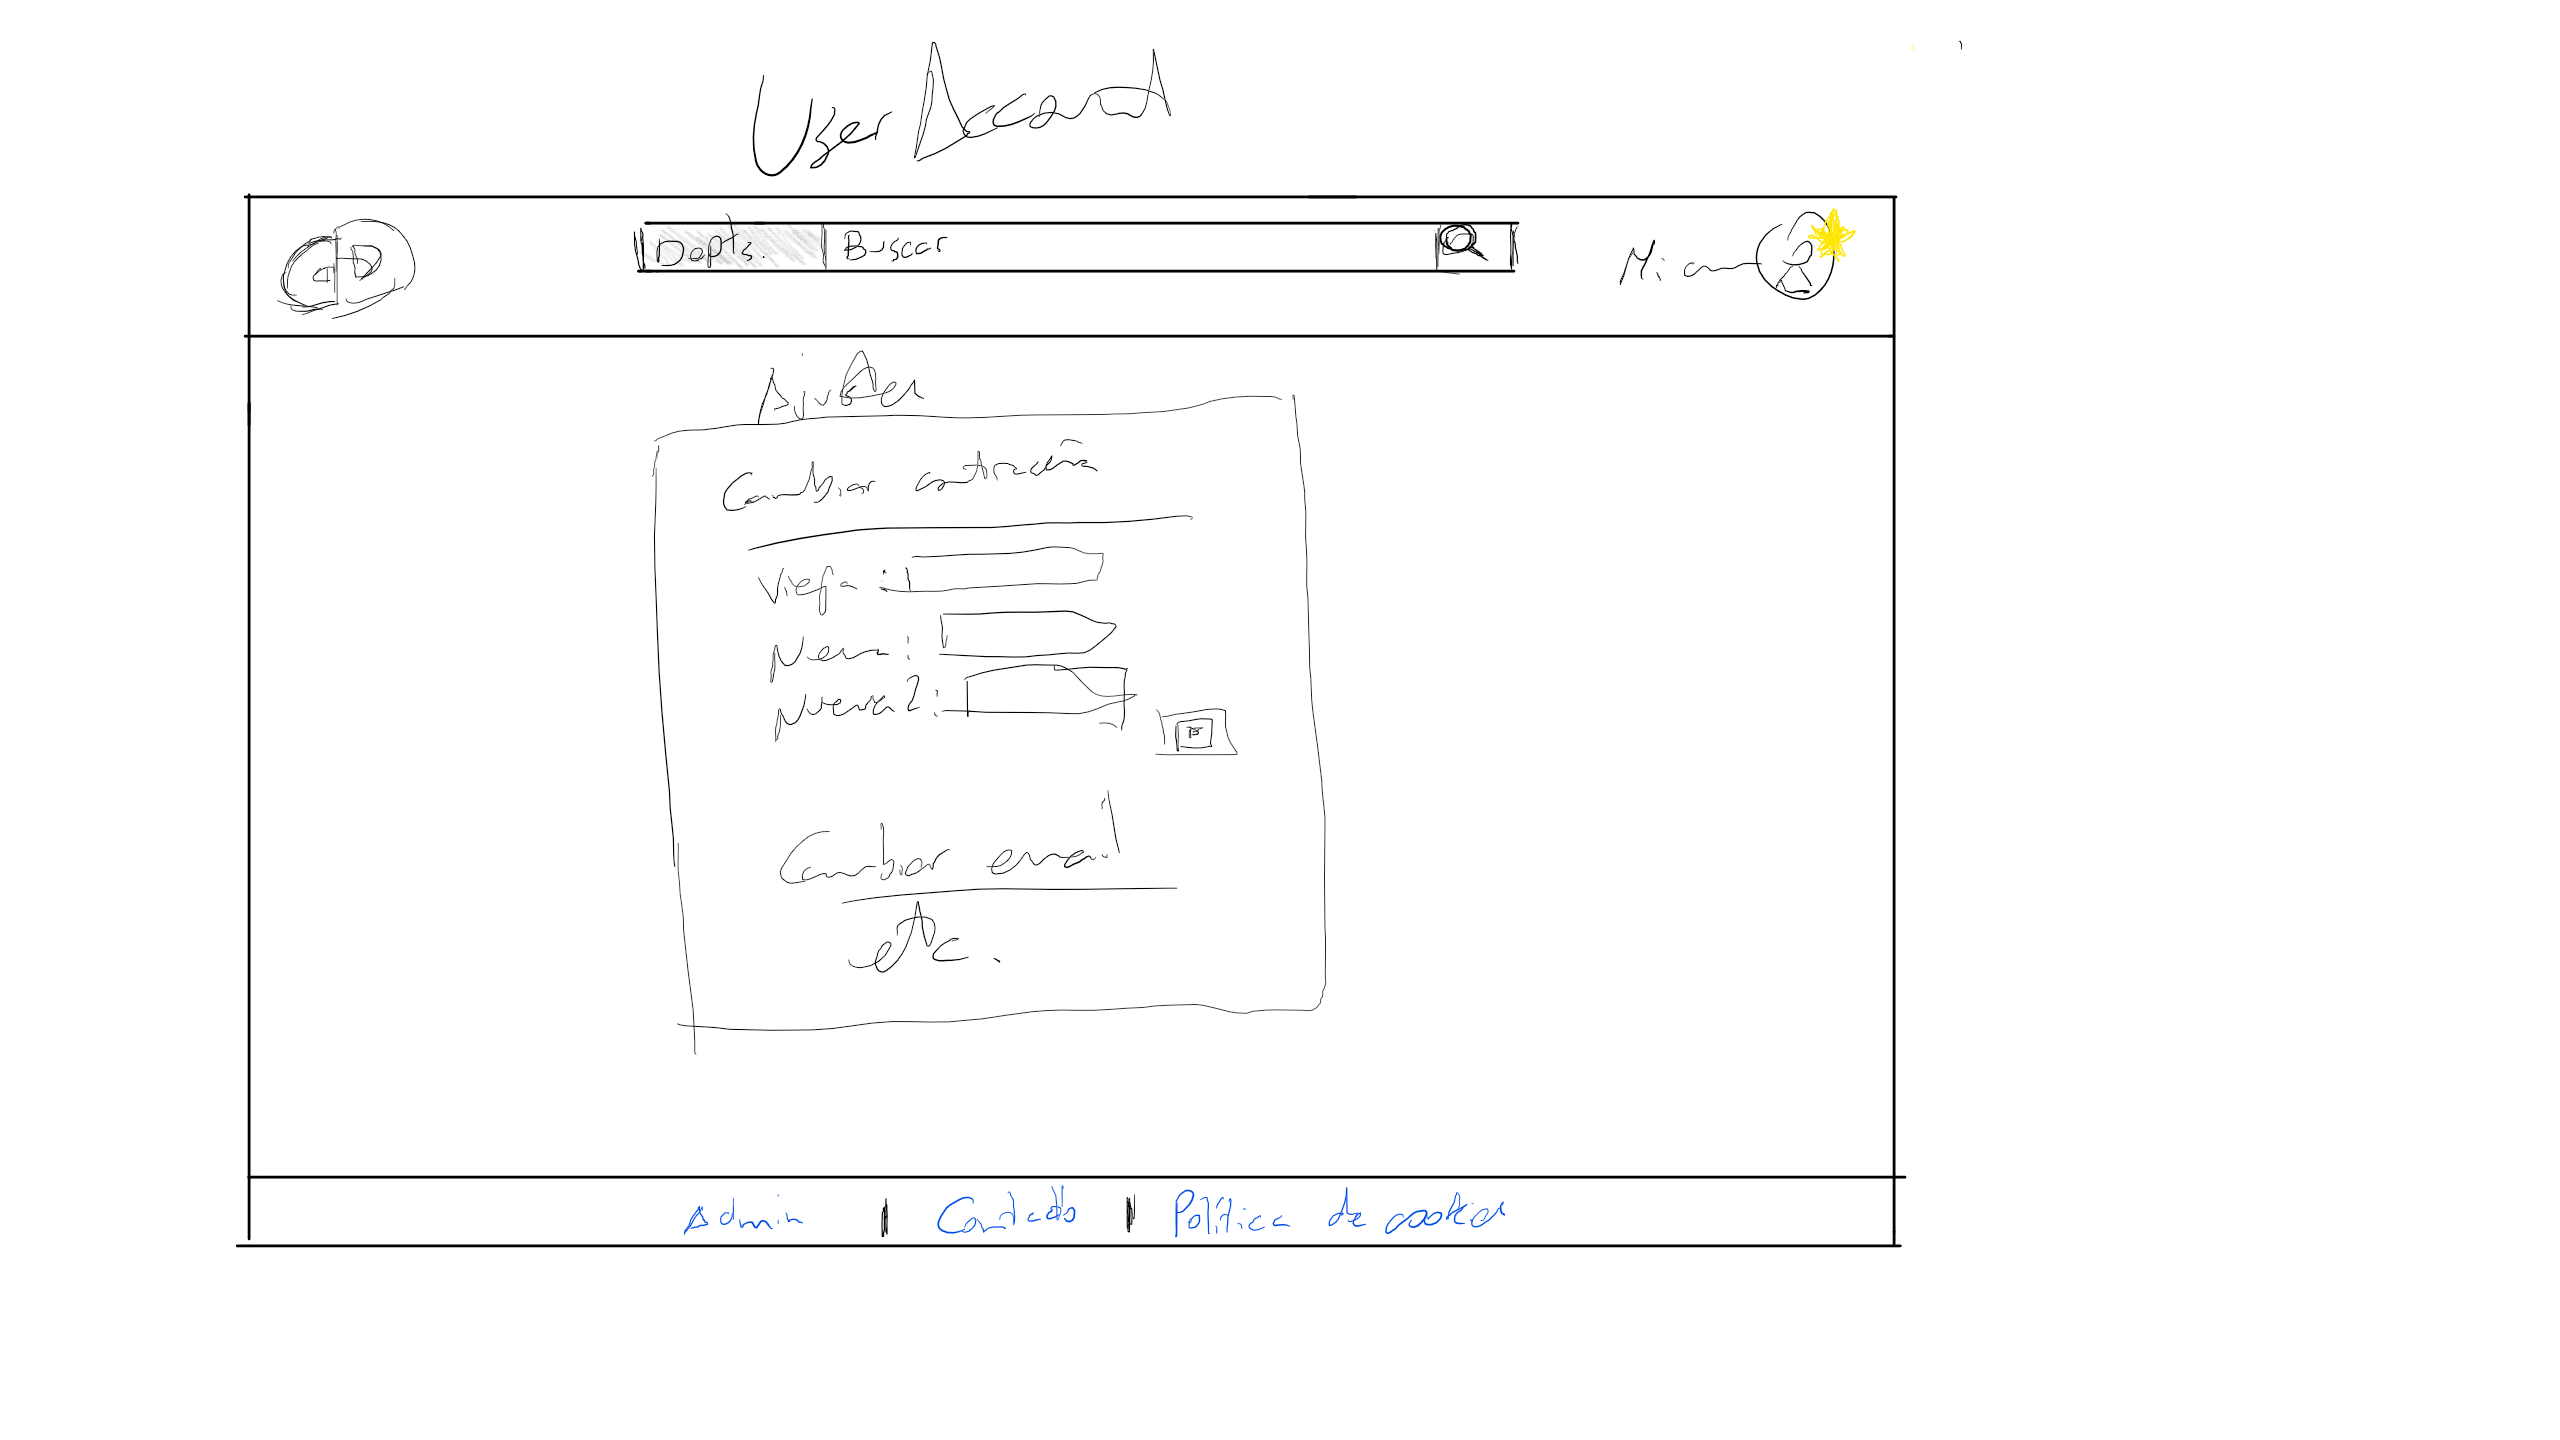 User Account
Depts. Buscar Mi
Ajustes
Cambiar contraseña
Vieja:
Nueva:
Nueva2:
Cambiar email
etc.
Admin | Contacto | Política de cookies